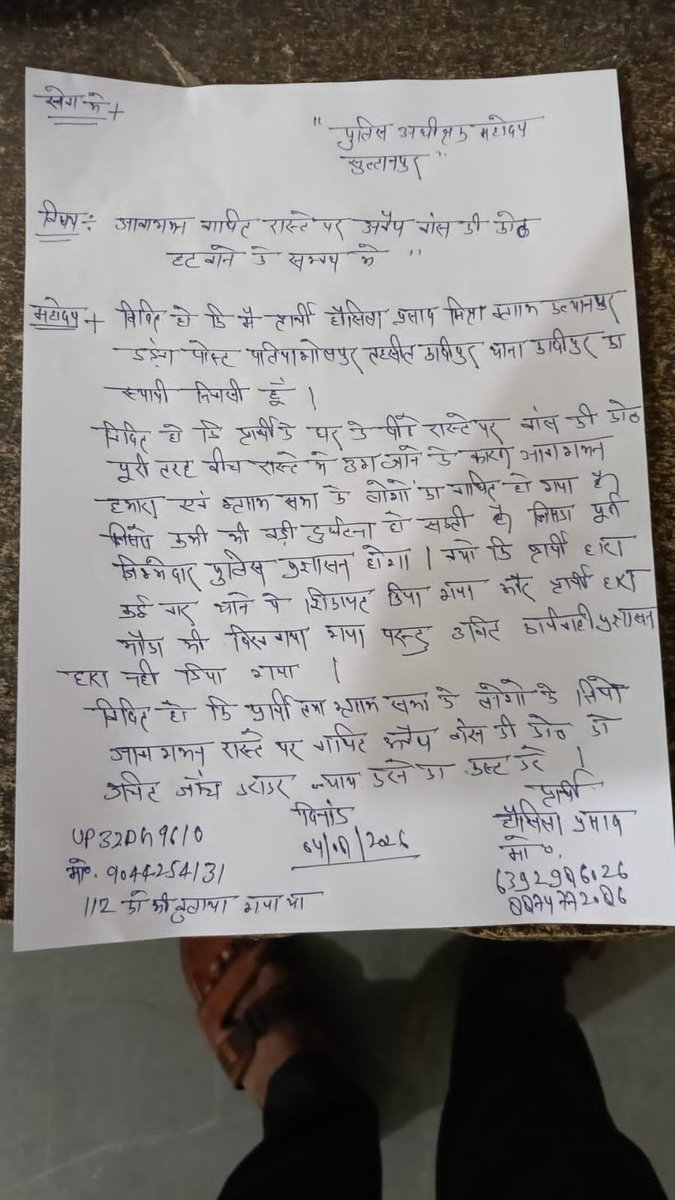 सेवा में +
" पुलिस अधीक्षक महोदय
सुल्तानपुर "
विषय :- आवागमन बाधित रास्ते पर अवैध बांस की कोठ
हटवाने के सम्बन्ध मे "
महोदय + विदित हो कि मै प्रार्थी हौसिला प्रसाद मिश्रा ग्राम
पोस्ट तहसील कादीपुर थाना कादीपुर का
स्थायी निवासी हूँ ।
विदित हो कि प्रार्थी के घर के पीछे रास्ते पर बांस की कोठ
पूरी तरह बीच रास्ते मे उग जाने के कारण आवागमन
हमारा एवं ग्राम सभा के लोगो का बाधित हो गया है
जिससे कभी भी बड़ी दुर्घटना हो सकती है जिसका पूर्ण
जिम्मेदार पुलिस प्रशासन होगा । क्यो कि प्रार्थी द्वारा
कई बार थाने पे शिकायत किया गया और प्रार्थी द्वारा
मौका भी दिखाया गया परन्तु उचित कार्यवाही प्रशासन
द्वारा नही किया गया ।
विदित हो कि प्रार्थी तथा ग्राम सभा के लोगो के लिये
आवागमन रास्ते पर बाधित अवैध बांस की कोठ को
उचित जाँच कराकर न्याय करने का कष्ट करे ।
दिनांक
प्रार्थी
UP32DN9610
हौसिला प्रसाद
मो० 9044254131
मो०
112 को भी बुलाया गया था